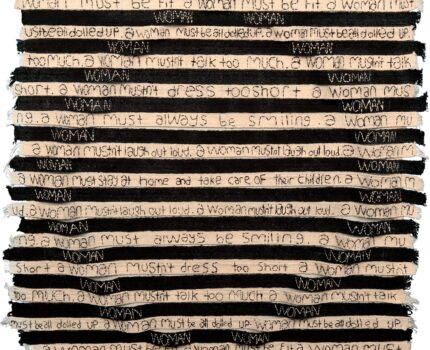 woman must be fit a woman must be fit a woman must
WOMAN WOMAN
must be all dolled up. a woman must be all dolled up. a woman must be all dolled up.
WOMAN WOMAN
too much, a woman mustn't talk too much. a woman mustn't talk
WOMAN WOMAN
short. a woman mustn't dress too short a woman mustn't
WOMAN WOMAN
ng. a woman must always be smiling. a woman mu
WOMAN WOMAN
a woman mustn't laugh out loud. a woman mustn't laugh out loud
WOMAN WOMAN
a woman must stay at home and take care of their children. a woman m
WOMAN WOMAN
ud. a woman mustn't laugh out loud. a woman mustn't laugh out loud. a woman mu
WOMAN WOMAN
ng. a woman must always be smiling. a woman mu
WOMAN WOMAN
short a woman mustn't dress too short a woman mustn't
WOMAN WOMAN
too much, a woman mustn't talk too much a woman mustn't talk
WOMAN WOMAN
must be all dolled up. a woman must be all dolled up. woman must be all dolled up.
WOMAN WOMAN
a woman must be fit a woman must be fit. a woman must